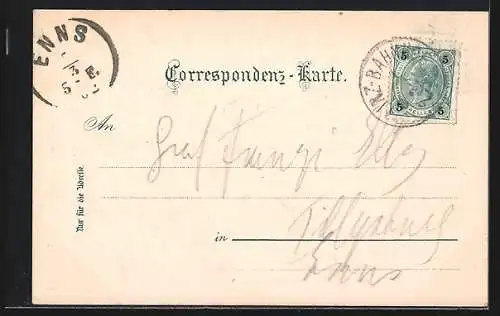 ENNS
Correspondenz-Karte.
LINZ-BAHNHOF
5 5
5 5
HELLER
An
Graf Franzi
Nur für die Adresse.
Tillysburg
in
Enns